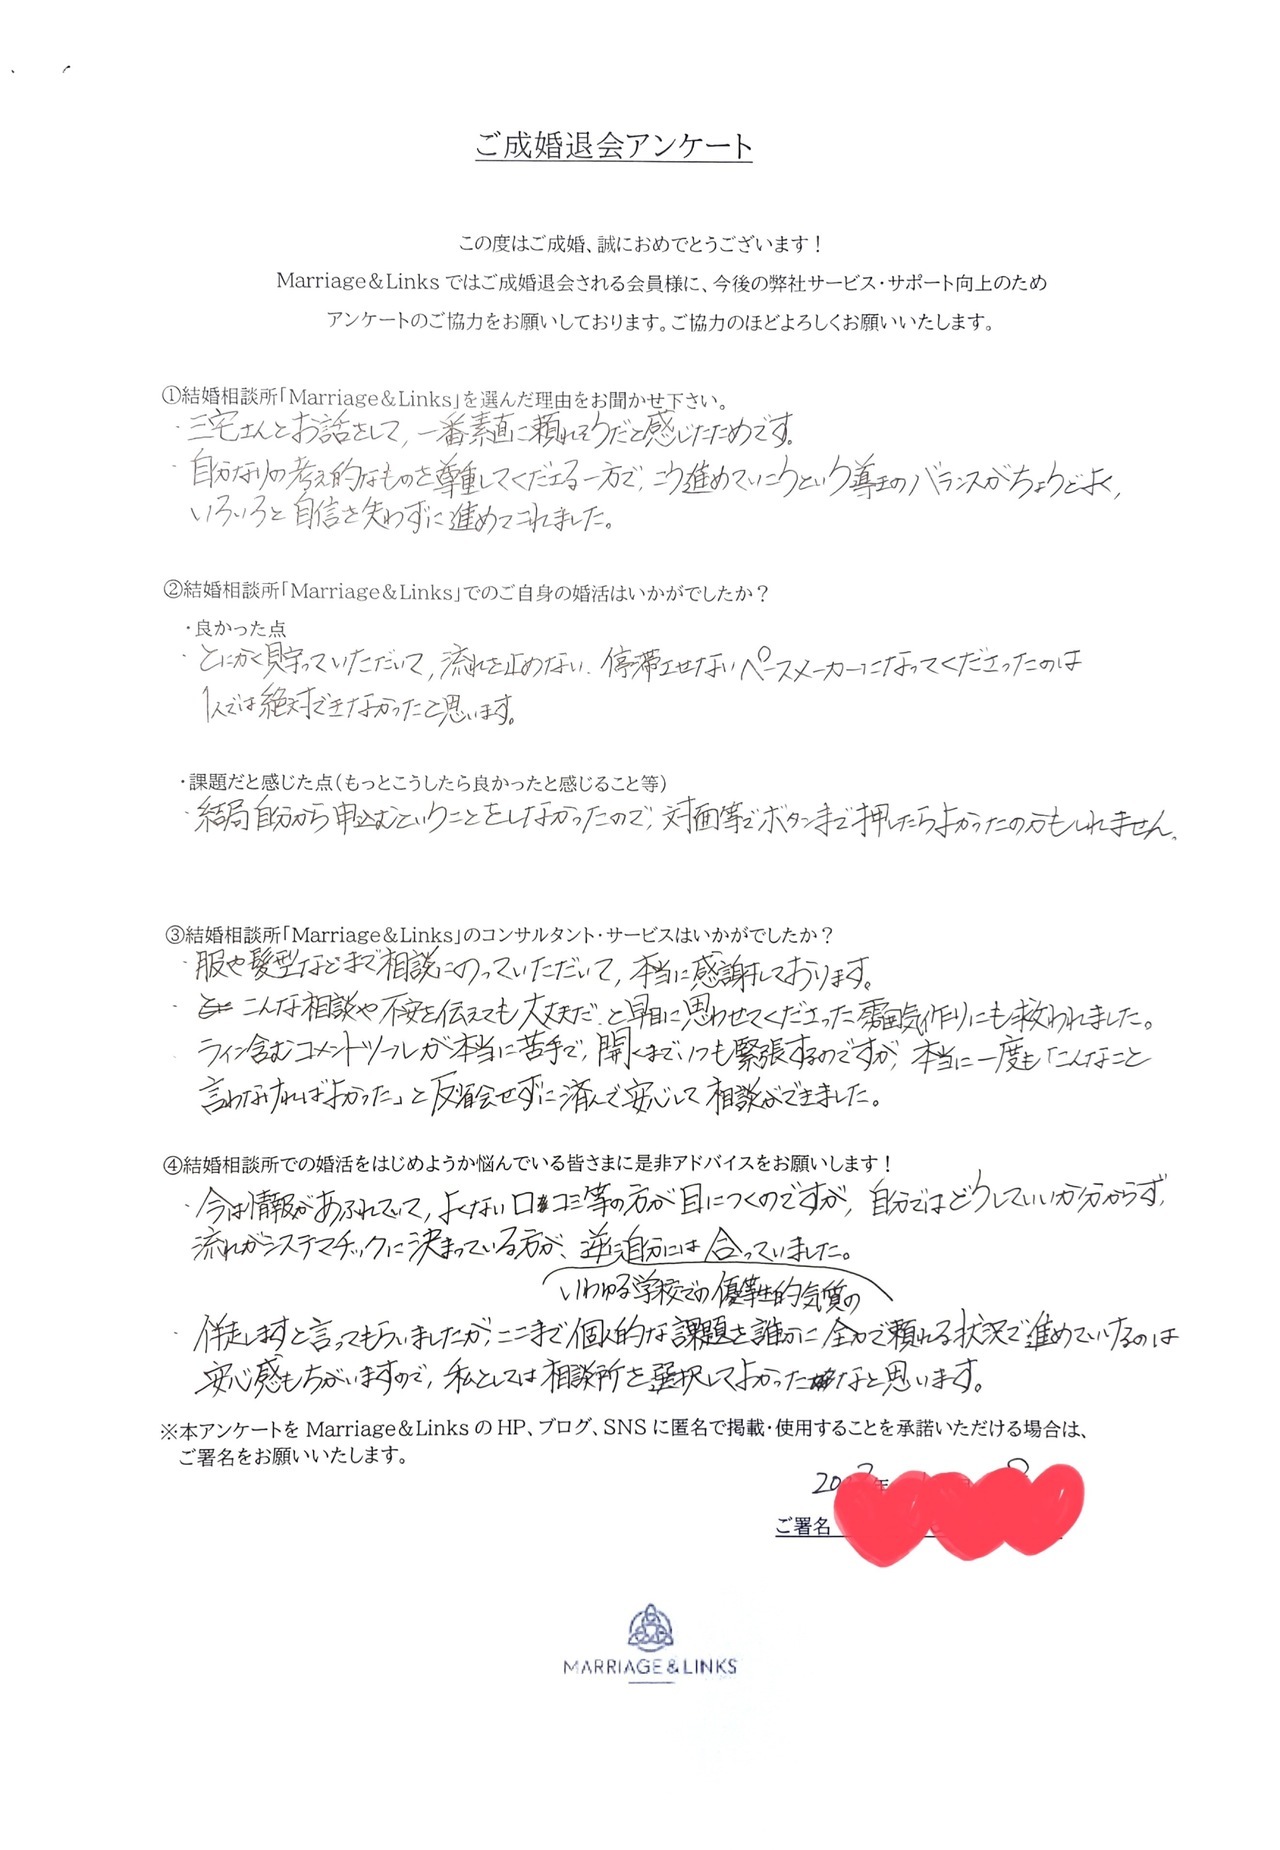 ご成婚退会アンケート
この度はご成婚、誠におめでとうございます！
Marriage＆Links ではご成婚退会される会員様に、今後の弊社サービス・サポート向上のため
アンケートのご協力をお願いしております。ご協力のほどよろしくお願いいたします。
①結婚相談所「Marriage＆Links」を選んだ理由をお聞かせ下さい。
・三宅さんとお話をして、一番素直に頼れそうだと感じたためです。
・自分なりの考え的なものを尊重してくださる一方で、こう進めていこうという導きのバランスがちょうどよく、
いろいろと自信を失わずに進めてこれました。
②結婚相談所「Marriage＆Links」でのご自身の婚活はいかがでしたか？
・良かった点
・とにかく見守っていただいて、流れを止めない、停滞させないペースメーカーになってくださったのは
1人では絶対できなかったと思います。
・課題だと感じた点（もっとこうしたら良かったと感じること等）
・結局自分から申込むということをしなかったので、対面等でボタンまで押したらよかったのかもしれません。
③結婚相談所「Marriage＆Links」のコンサルタント・サービスはいかがでしたか？
・服や髪型などまで相談にのっていただいて、本当に感謝しております。
・こんな相談や不安を伝えても大丈夫だ、と早目に思わせてくださった雰囲気作りにも救われました。
ライン含むコメントツールが本当に苦手で、開くまでいつも緊張するのですが、本当に一度も「こんなこと
言わなければよかった」と反省会せずに済んで安心して相談ができました。
④結婚相談所での婚活をはじめようか悩んでいる皆さまに是非アドバイスをお願いします！
・今は情報があふれていて、よくない口コミ等の方が目につくのですが、自分ではどうしていいか分からず、
流れがシステマチックに決まっている方が、逆に自分には合っていました。
いわゆる学校での優等生的気質の
・伴走しますと言ってもらいましたが、ここまで個人的な課題を誰かに全力で頼れる状況で進めていけるのは
安心感もちがいますので、私としては相談所を選択してよかったなと思います。
※本アンケートを Marriage＆Links の HP、ブログ、SNS に匿名で掲載・使用することを承諾いただける場合は、
ご署名をお願いいたします。
年
ご署名
MARRIAGE&LINKS